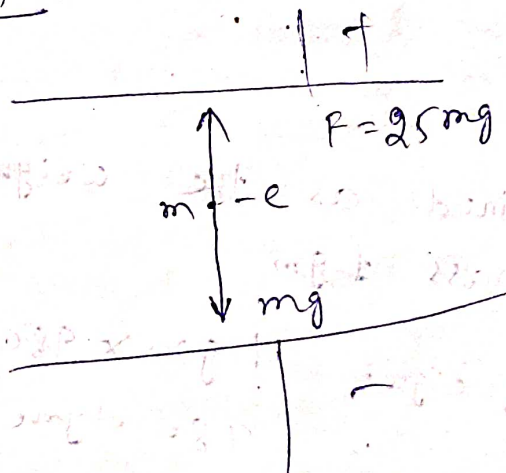 +
F = 25 mg
m -e
mg
-